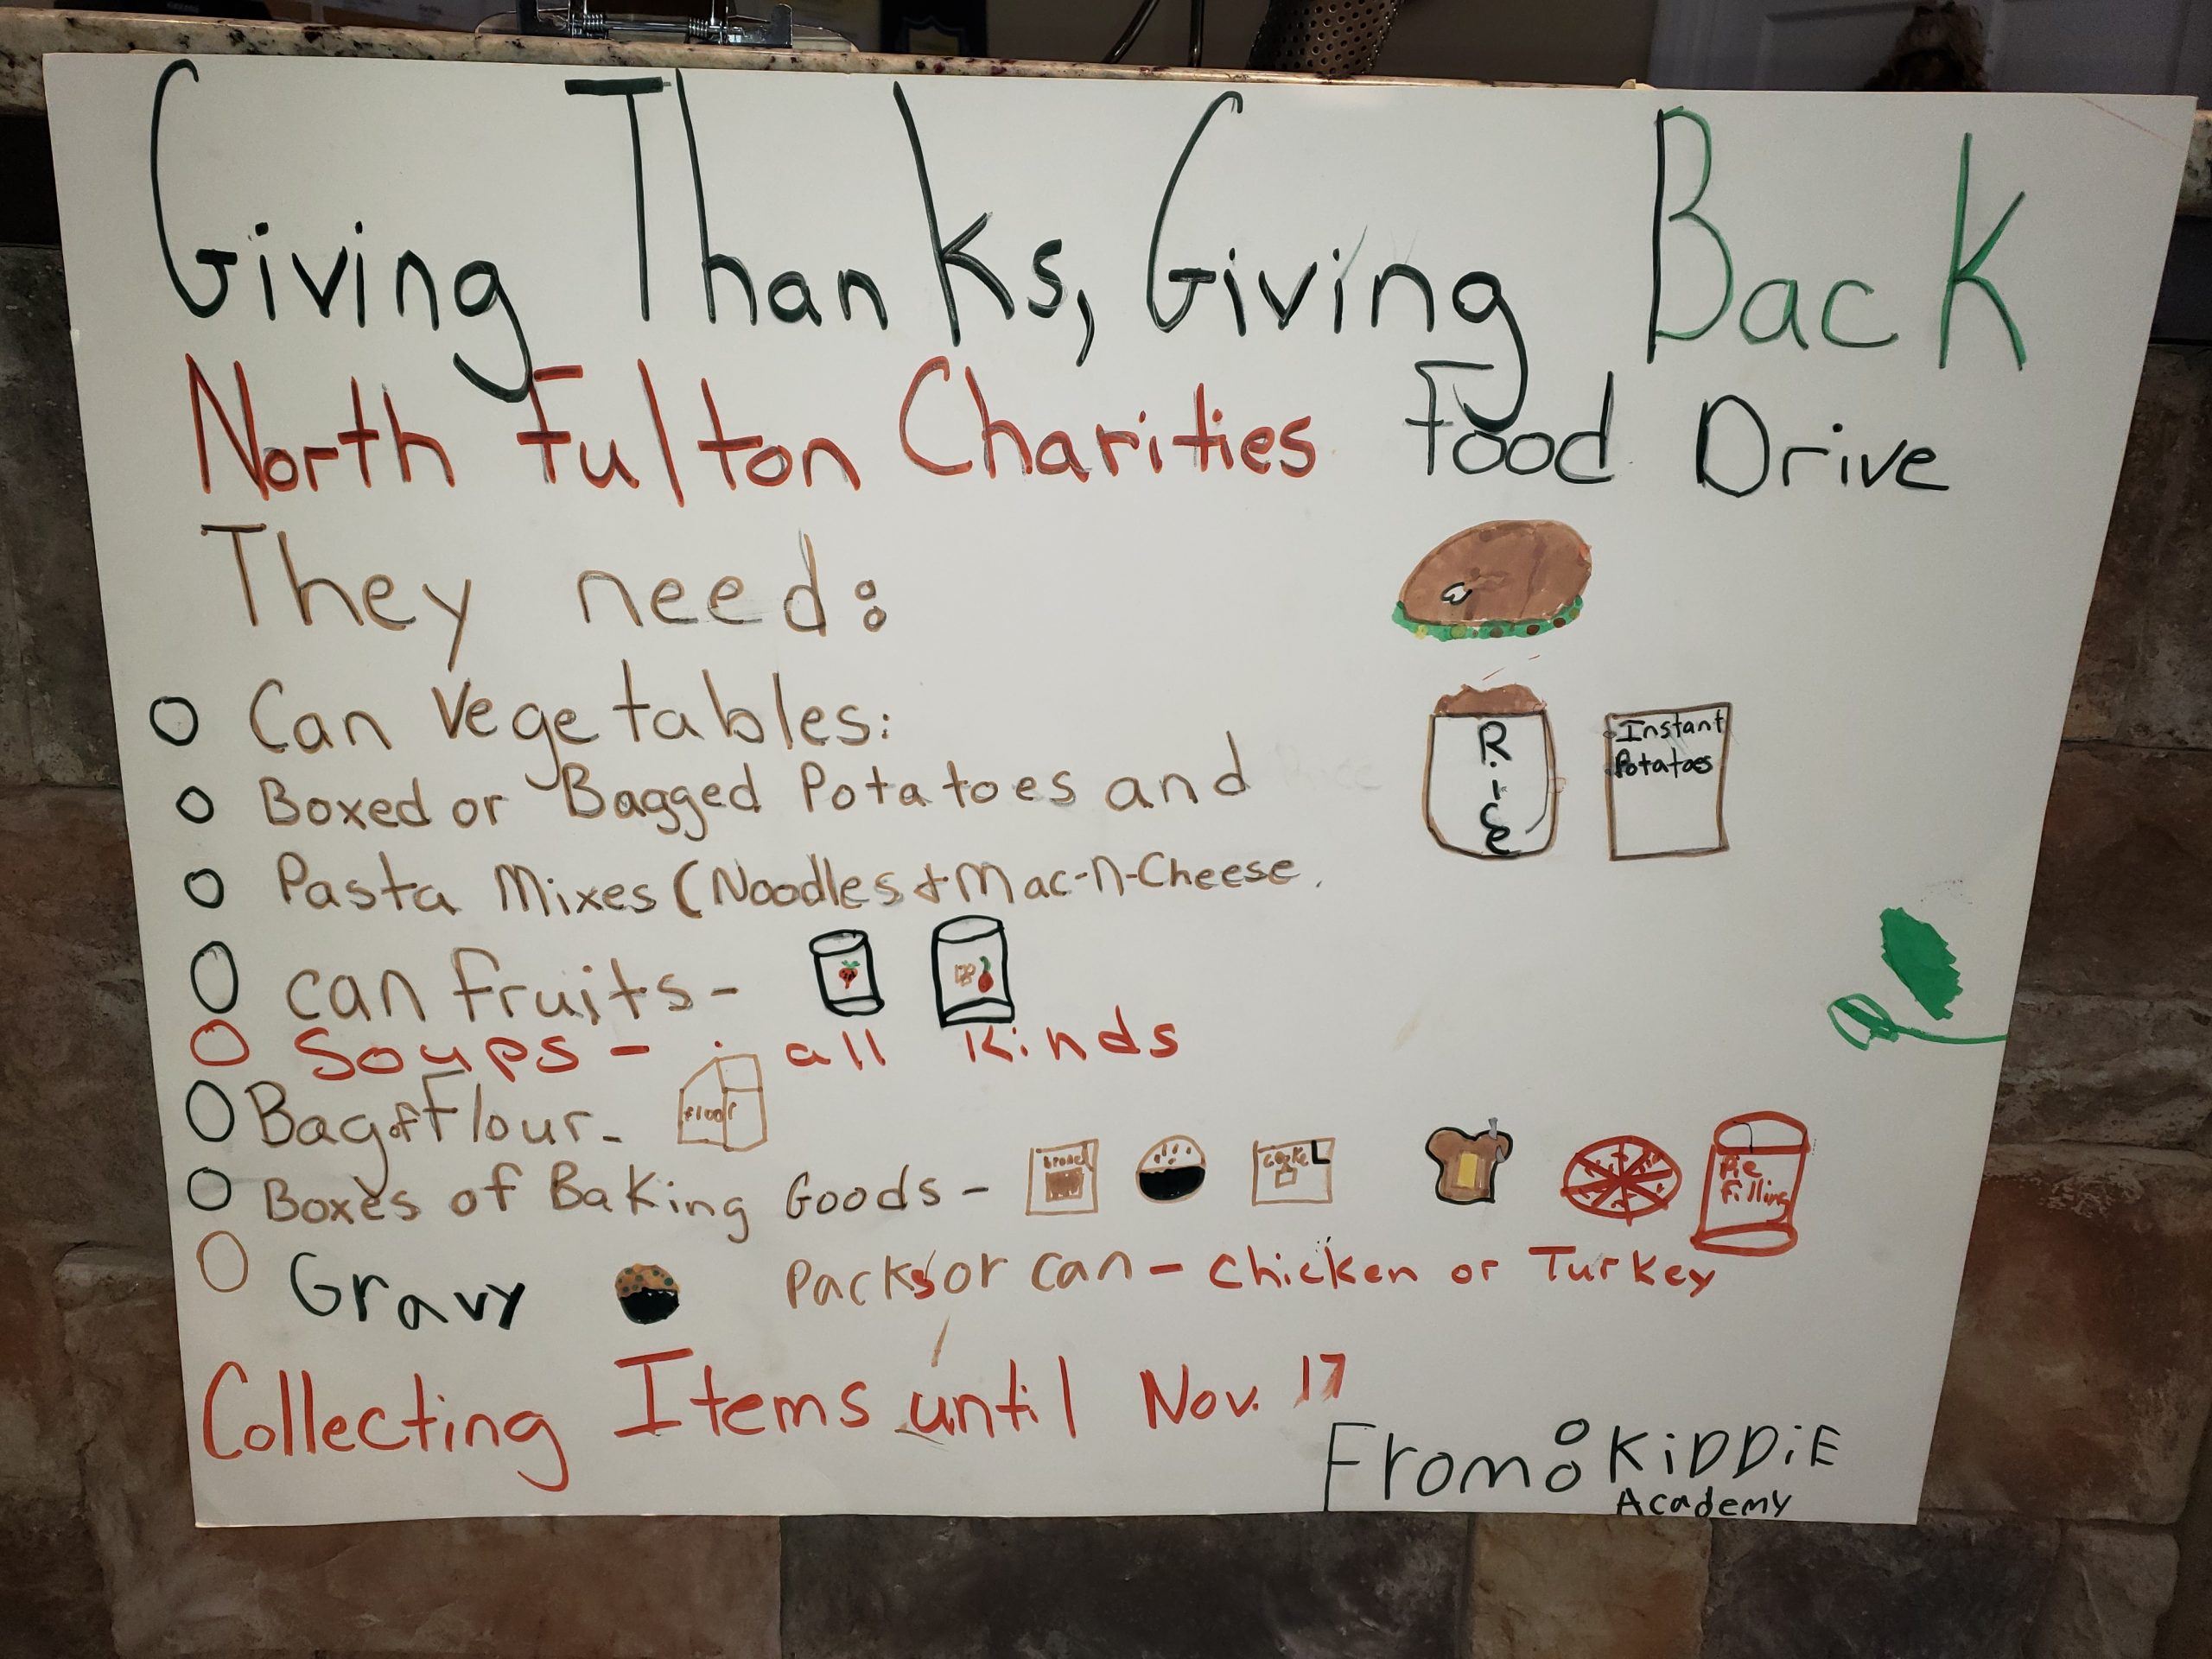 Giving Thanks, Giving Back
North Fulton Charities Food Drive
They need:
Can Vegetables:
Boxed or Bagged Potatoes and
Rice
Instant
Potatoes
Pasta Mixes (Noodles & Mac-n-Cheese.
can fruits-
Soups - all Kinds
Bag of Flour-
flour
Boxes of Baking Goods -
bread
Pie
Filling
Gravy Packs or can - Chicken or Turkey
Collecting Items until Nov. 17
From: KiDDiE
Academy